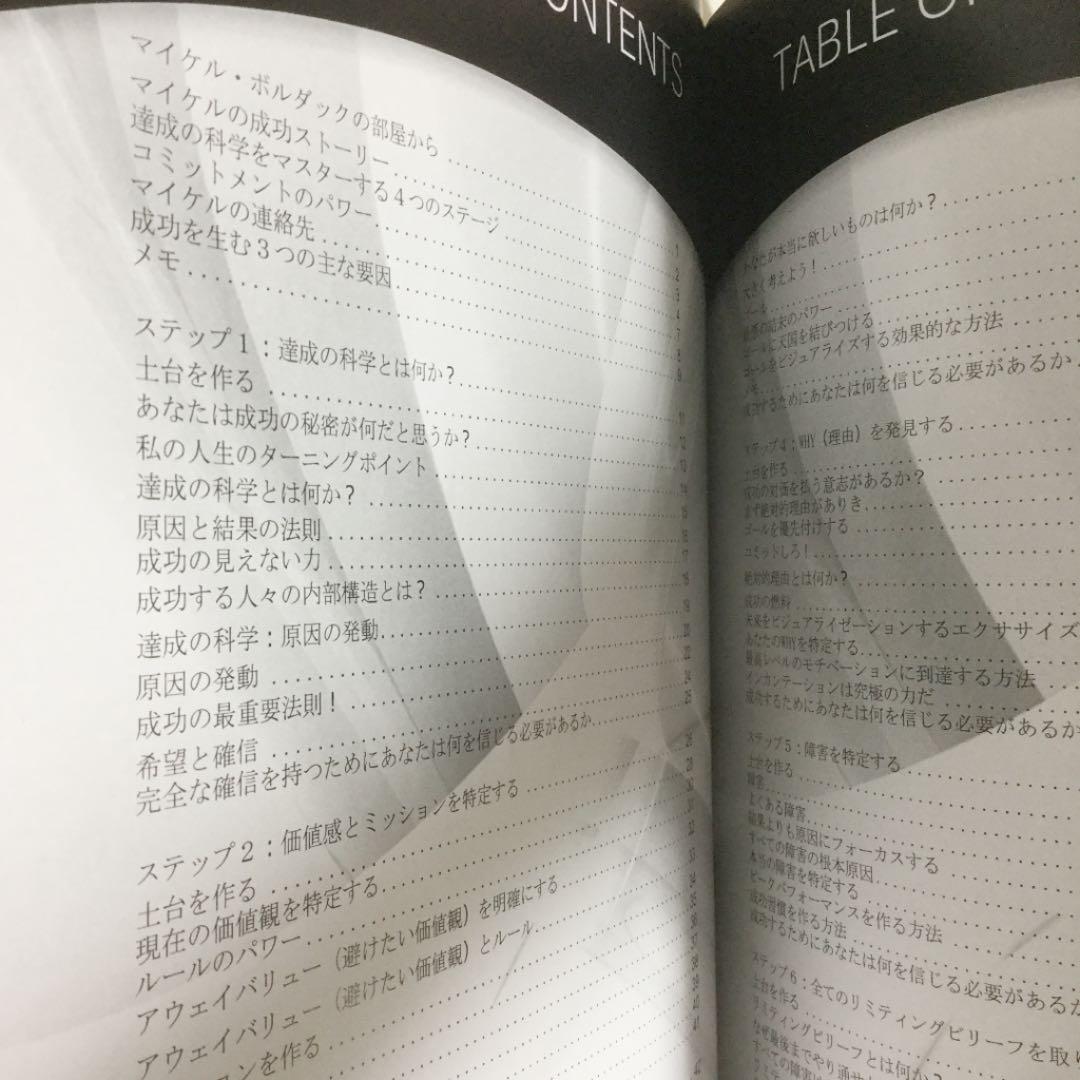 CONTENTS
マイケル・ボルダックの部屋から
マイケルの成功ストーリー
達成の科学をマスターする4つのステージ
コミットメントのパワー
マイケルの連絡先
成功を生む3つの主な要因
メモ
ステップ1：達成の科学とは何か?
土台を作る
あなたは成功の秘密が何だと思うか?
私の人生のターニングポイント
達成の科学とは何か?
原因と結果の法則
成功の見えない力
成功する人々の内部構造とは?
達成の科学：原因の発動
原因の発動
成功の最重要法則!
希望と確信
完全な確信を持つためにあなたは何を信じる必要があるか
ステップ2：価値感とミッションを特定する
土台を作る
現在の価値観を特定する
ルールのパワー
アウェイバリュー（避けたい価値観）を明確にする
アウェイバリュー（避けたい価値観）とルール
ションを作る
TABLE
あなたが本当に欲しいものは何か?
大きく考えよう!
ゴール
結末のパワー
ゴールに天国を結びつける
ゴールをビジュアライズする効果的な方法
メモ
成功するためにあなたは何を信じる必要があるか
ステップ4：WHY（理由）を発見する
土台を作る
成功の対価を払う意志があるか?
まず絶対的理由がありき
ゴールを優先付けする
コミットしろ!
絶対的理由とは何か?
成功の燃料
未来をビジュアライゼーションするエクササイズ
あなたのWHYを特定する
最高レベルのモチベーションに到達する方法
インカンテーションは究極の力だ
成功するためにあなたは何を信じる必要があるか
ステップ5：障害を特定する
土台を作る
障害
よくある障害
結果よりも原因にフォーカスする
すべての障害の根本原因
本当の障害を特定する
ピークパフォーマンスを作る方法
成功習慣を作る方法
成功するためにあなたは何を信じる必要があるか
ステップ6：全てのリミティングビリーフを取り
土台を作る
リミティングビリーフとは何か?
なぜ最後までやり通せ
すべての障害は